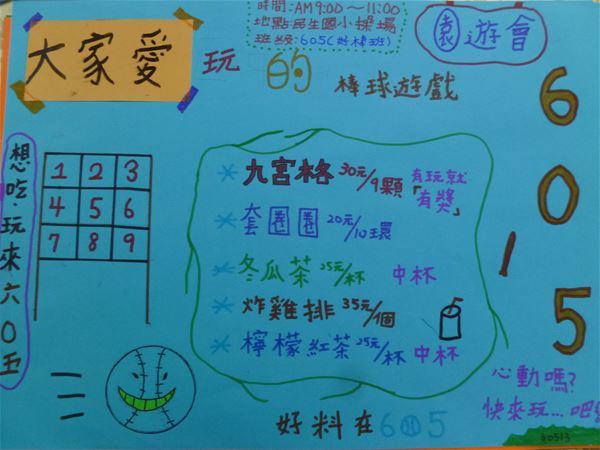 時間:AM9:00～11:00
地點:民生國小操場
班級:605(好棒班)
園遊會
大家愛玩的棒球遊戲
605
想吃玩來六0五
1 2 3
4 5 6
7 8 9
九宮格 30元/9顆 有玩就「有獎」
套圈圈 20元/10環
冬瓜茶 25元/杯 中杯
炸雞排 35元/個
檸檬紅茶 25元/杯 中杯
心動嗎?
快來玩...吧!
好料在605
60513